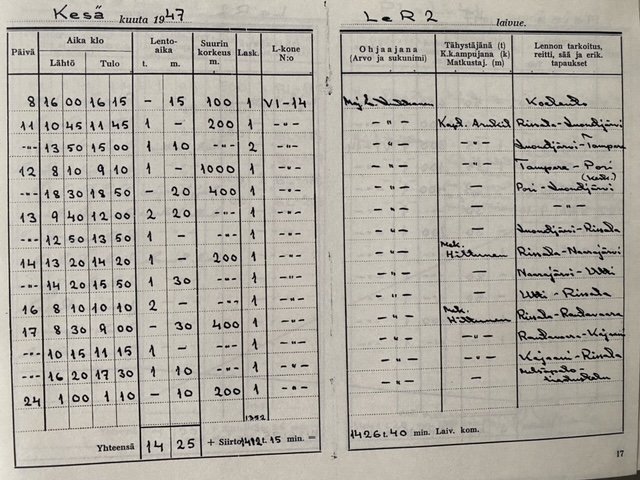 Kesä kuuta 1947
LeR 2 laivue.
Päivä Aika klo Lento-aika Suurin korkeus m. Lask. L-kone N:o Ohjaajana (Arvo ja sukunimi) Tähystäjänä (t) K.k.ampujana (k) Matkustaj. (m) Lennon tarkoitus, reitti, sää ja erik. tapaukset
Lähtö Tulo t. m.
8 16 00 16 15 - 15 100 1 VI-14 Maj. Koelento
11 10 45 11 45 1 - 200 1 -"- -"- Kapt. Rissala-
-"- 13 50 15 00 1 10 -"- 2 -"- -"- -"- -Tampere
12 8 10 9 10 1 - 1000 1 -"- -"- -"- Tampere-Pori
-"- 18 30 18 50 - 20 400 1 -"- -"- - Pori-
13 9 40 12 00 2 20 -"- 1 -"- -"- - -"-
-"- 12 50 13 50 1 - -"- 1 -"- -"- - -Rissala
14 13 20 14 20 1 - 200 1 -"- -"- Mek. Hiltunen Rissala-Naarajärvi
-"- 14 20 15 50 1 30 -"- 1 -"- -"- - Naarajärvi-Utti
16 8 10 10 10 2 - -"- 1 -"- -"- - Utti-Rissala
17 8 30 9 00 - 30 400 1 -"- -"- Mek. Hiltunen Rissala-Rautavaara
-"- 10 15 11 15 1 - -"- 1 -"- -"- -"- Rautavaara-Kajaani
-"- 16 20 17 30 1 10 -"- 1 -"- -"- -"- Kajaani-Rissala
24 1 00 1 10 - 10 200 1 -"- - Metsäpalotiedustelu
Yhteensä 14 25 + Siirto t. 15 min. = 1426 t. 40 min. Laiv. kom.
17